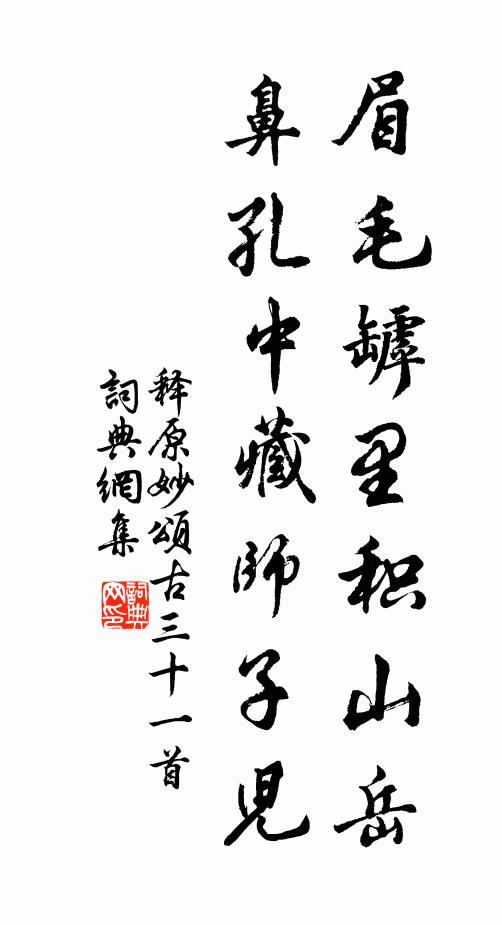 眉毛罅里积山岳
鼻孔中藏師子児
释原妙頌古三十一首
詞典網集
詞典网印